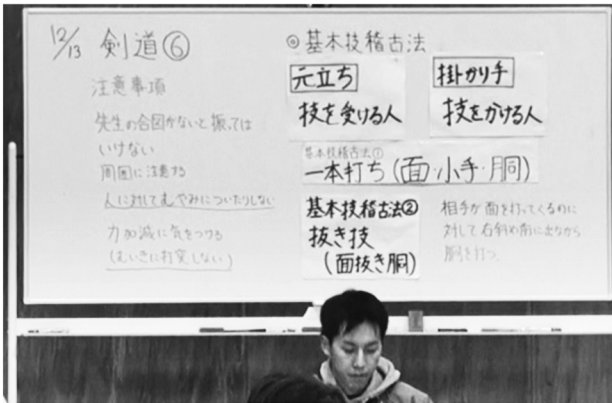 12/13 剣道⑥
注意事項
先生の合図がないと振っては
いけない
周囲に注意する
人に対してむやみについたりしない
力加減に気をつける
(むやみに打突しない)
◎基本技稽古法
元立ち
技を受ける人
掛かり手
技をかける人
基本技稽古法①
一本打ち(面・小手・胴)
基本技稽古法②
抜き技
(面抜き胴)
相手が面を打ってくるのに
対して右斜め前に出ながら
胴を打つ